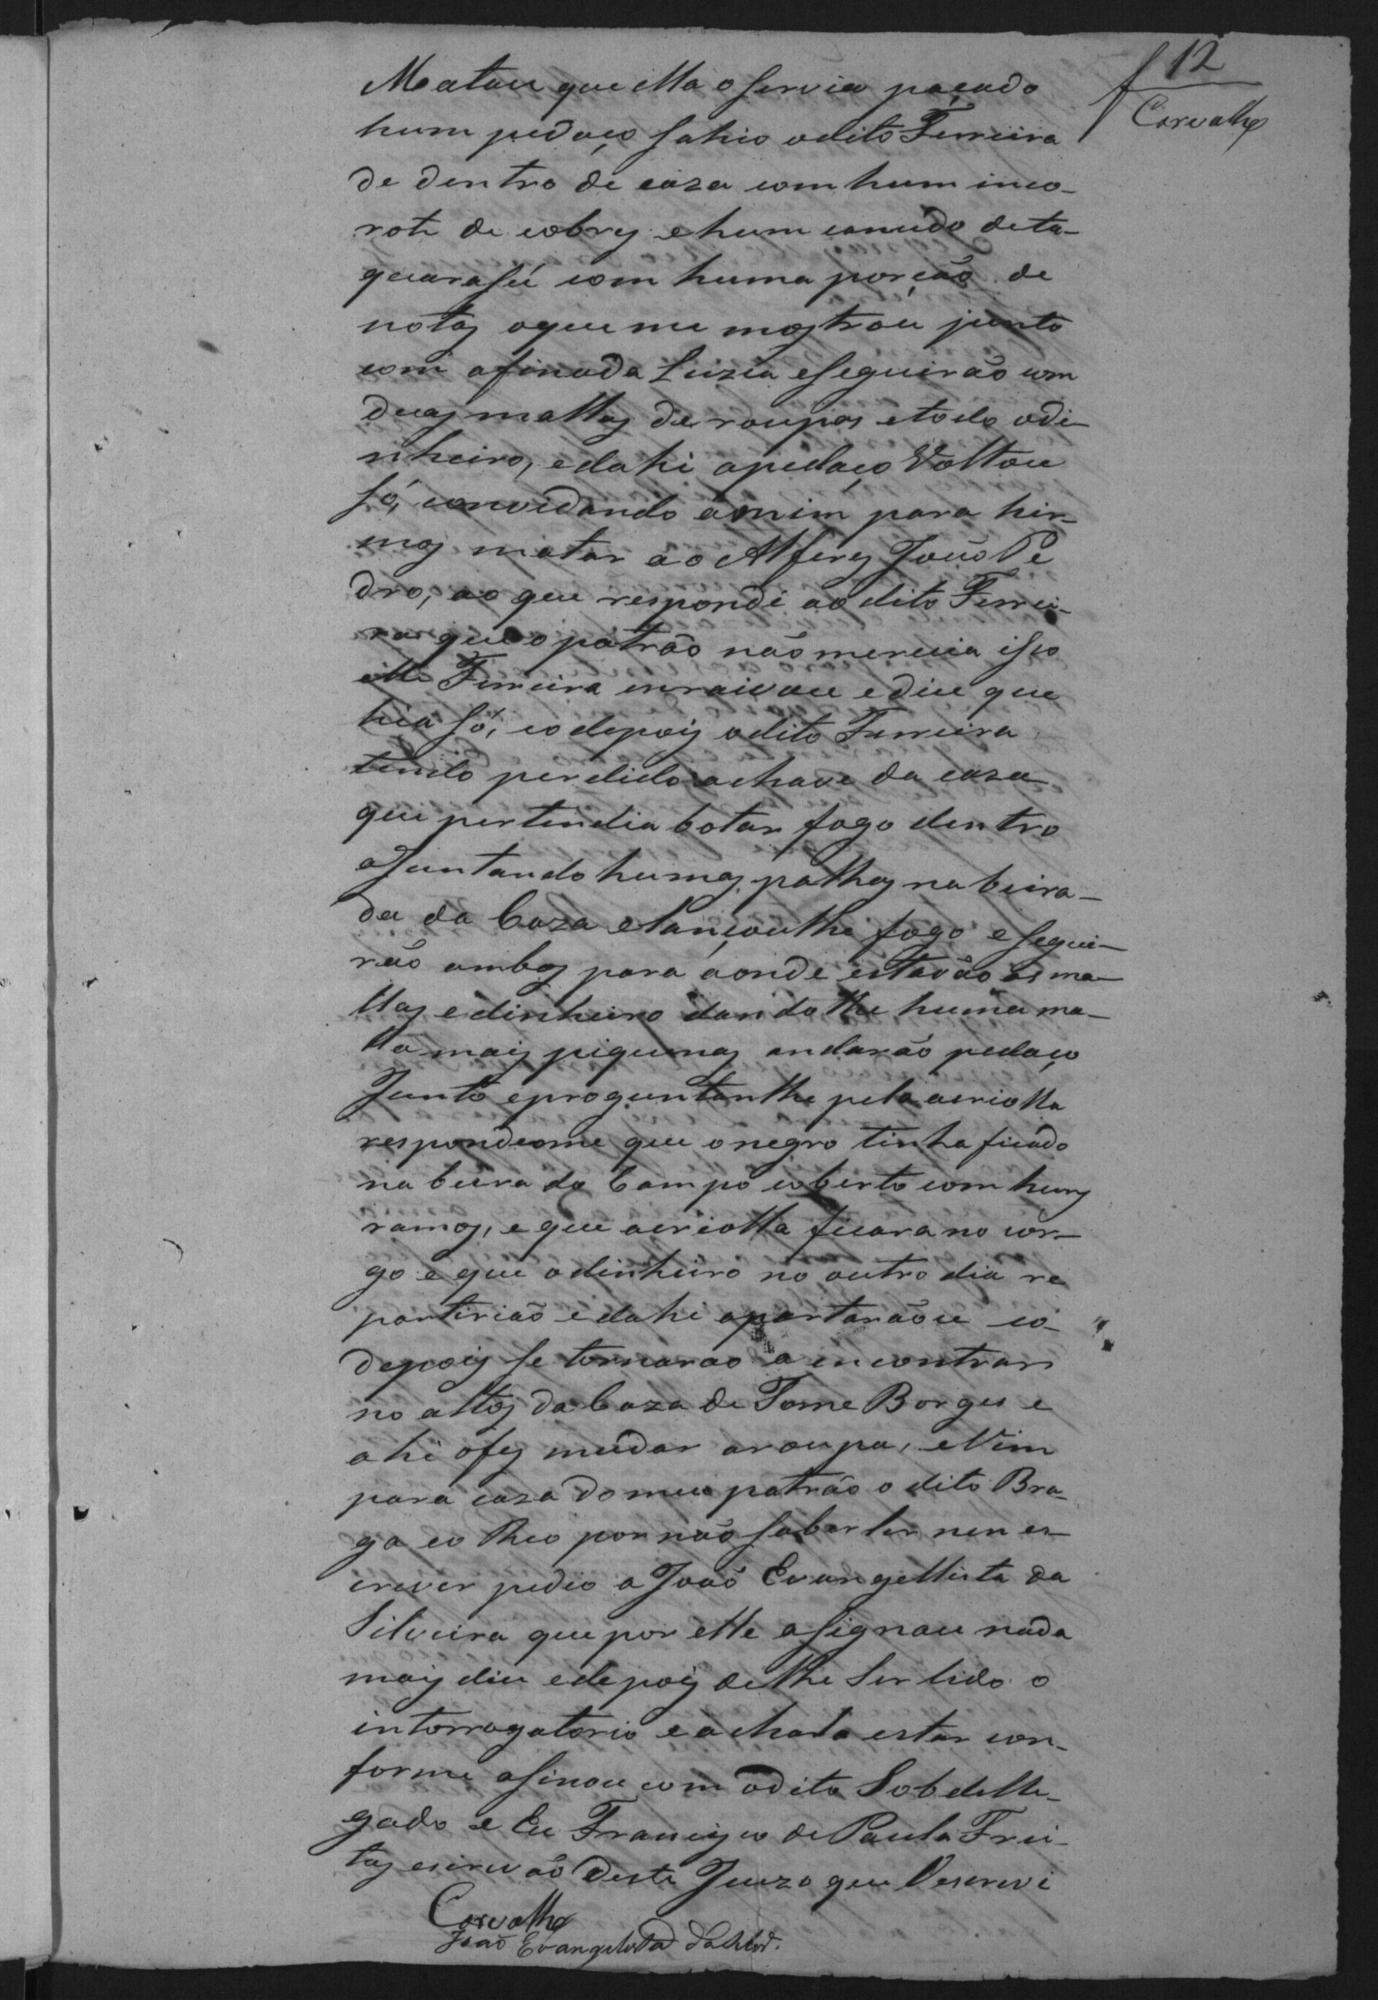 f 12
Carvalho
Matau que ella o servia paçado
hum pedaço sahio o dito Ferreira
de dentro de caza com hum inco-
rote de cobres e hum canudo de ta-
quarasú com huma porção de
notas o que me mostrou junto
com a finada Luzia e seguirão com
duas mallas de roupas e todo o di-
nheiro, e dahi a pedaço Voltou
só, convidando a mim para hir-
mos matar ao Alferes João Pe
dro, ao que respondi ao dito Ferrei-
ra que o patrão não mericia isso
elle Ferreira enraivou e dice que
hia só, e depois o dito Ferreira
tendo perdido a chave da caza
que pertendia botar fogo dentro
ajuntando humas palhas na beira-
da da Caza e lançoulhe fogo e segui-
rão ambos para aonde estavão as ma-
llas e dinheiro dandolhe huma ma-
lla mais piquena, andarão pedaço
Junto e proguntanlhe pela criolla
respondeome que o negro tinha ficado
na beira do Campo coberto com huns
ramos, e que a criolla ficara no cor-
go e que o dinheiro no outro dia re
partirião e dahi apartarãoce e
depois se tornarão a encontrar
no altos da Caza de Tome Borges e
ahi o fes mudar a roupa, e Vim
para caza do meu patrão o dito Bra-
ga e o Reo por não saber ler nem es-
crever pedio a João Evangellista da
Silveira que por elle asignou nada
mais dice e depois de lhe ser lido o
intorrogatorio e achala estar con-
forme asinou com o dito Sobdelle-
gado e Eu Francisco de Paula Frei-
tas escrivão deste Juizo que Oescrevi
Carvalho
João Evangelista da